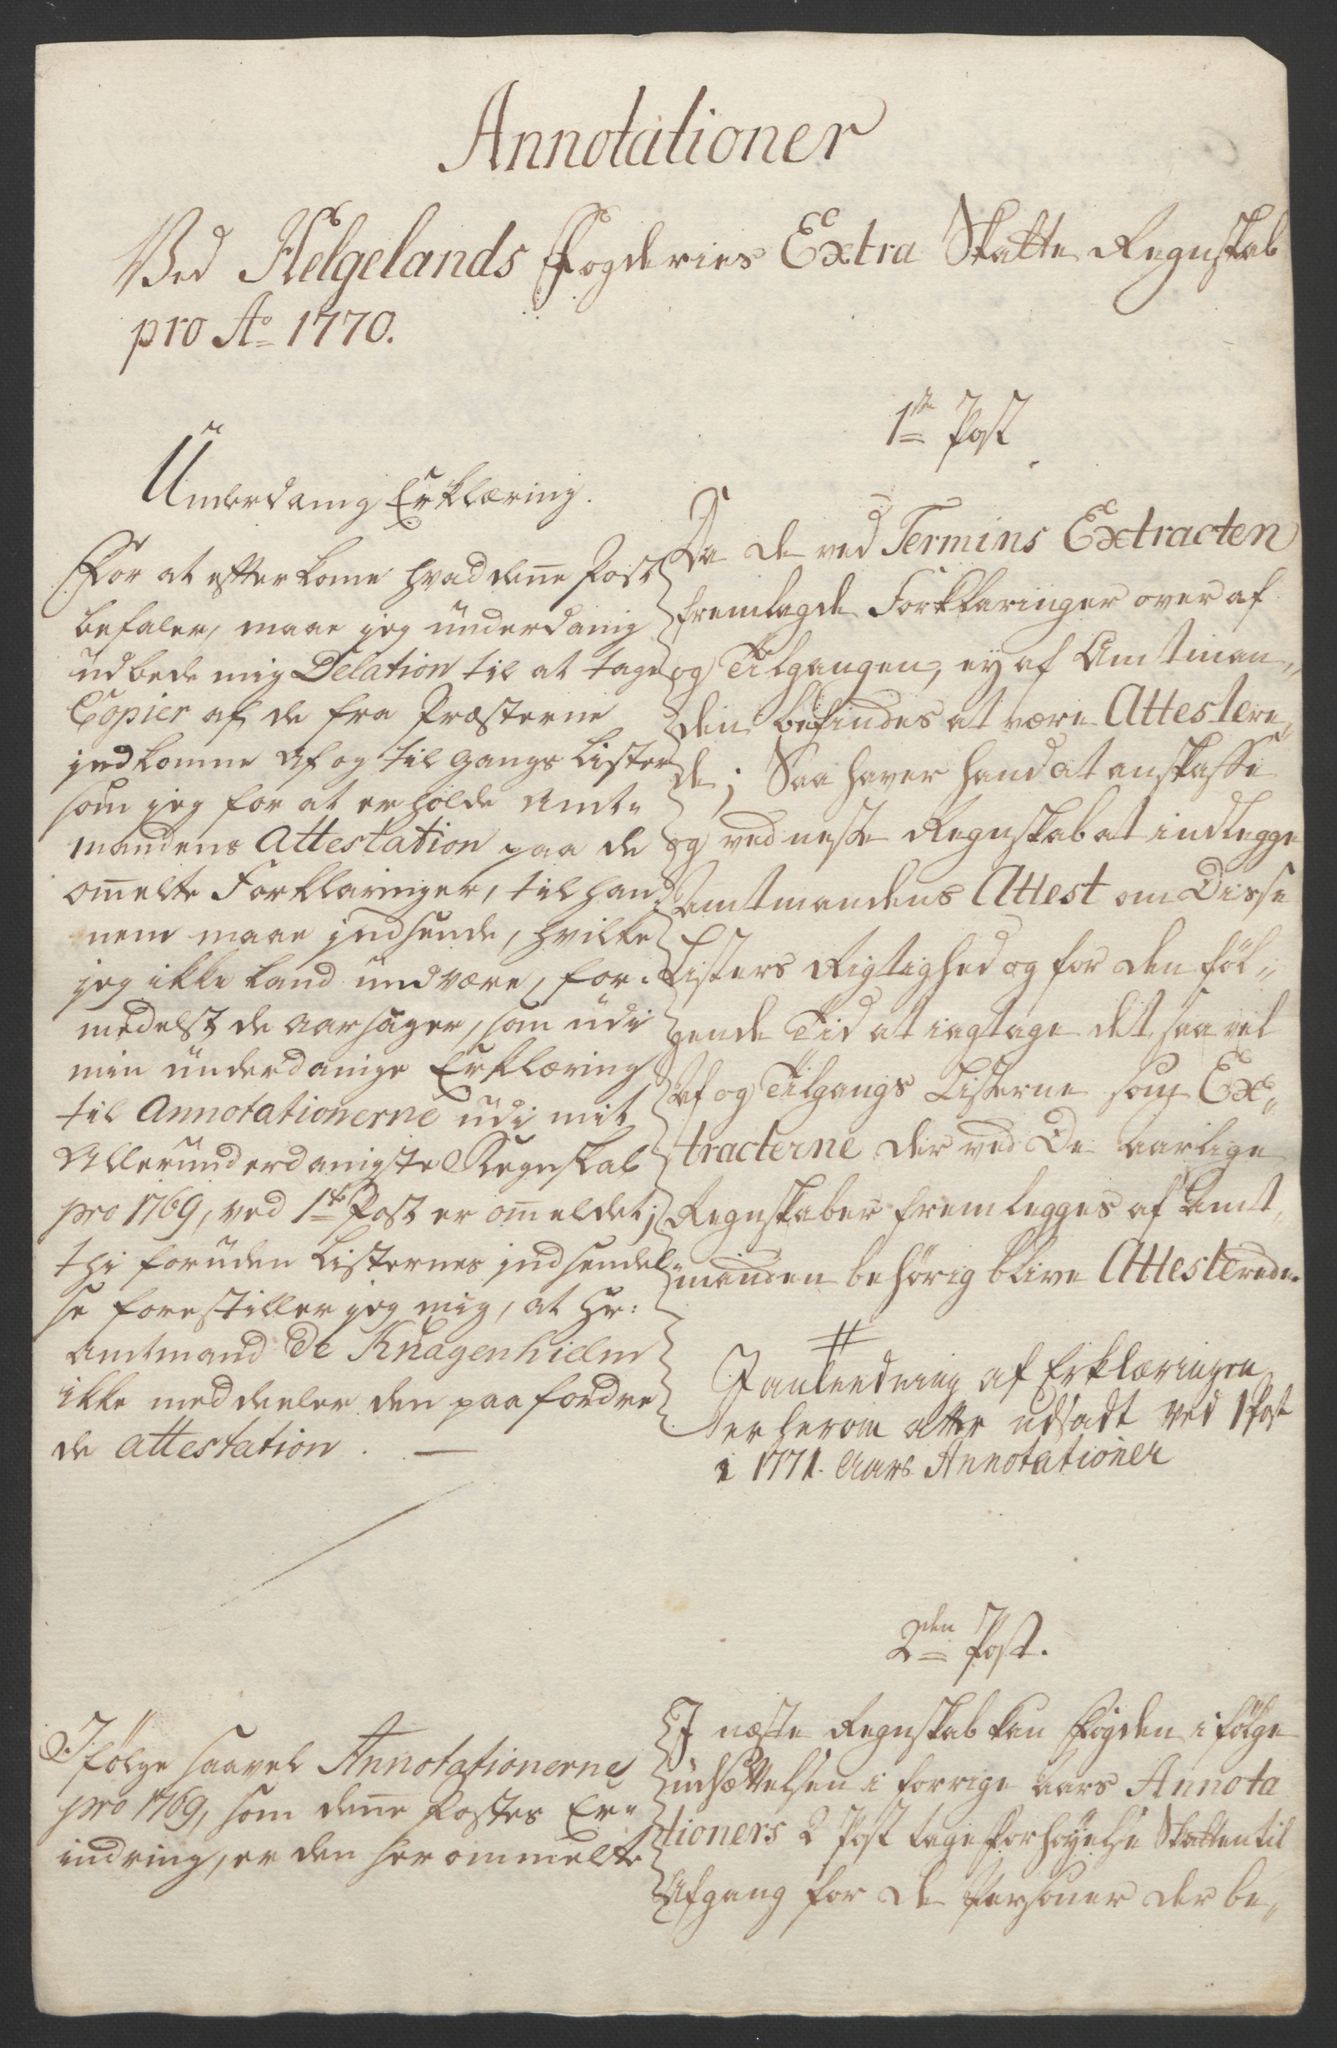 Annotationer
Ved Helgelands Fogderies Extra Skatte Regnskab
pro Ao 1770.
Underdanig Erklæring.
For at efterkome hvad dene Post
befaler, maae jeg underdanig
udbede mig Delation til at tage
Copier af de fra Præsterne
jndkomne Af og til gangs Lister
som jeg for at erholde Amt-
mandens Attestation paa de
omelte Forklaringer, til han
nem maae jndsende, hvilke
jeg ikke kand undvære, for-
medelst de Aarsager, som udi
min underdanige Erklæring
til Annotationerne udi mit
Allerunderdanigste Regnskab
pro 1769, ved 1te Post er omeldet;
thi foruden Listernes jndsendel-
se forestiller jeg mig, at Hr:
Amtmand De Knagenhielm
ikke meddeeler den paafordre
de Attestation. —
1te Post
Da de ved Termins Extracten
fremlagde Forklaringer over af
og Tilgangen, ey af Amtman-
den befindes at være Attestere-
de; Saa haver hand at anskaffe
og ved neste Regnskab at indlegge
Amtmandens Attest om Disse
Listers Rigtighed og for den föl-
gende Tid at iagtage det saavel
Af og Tilgangs Listerne som Ex-
tracterne der ved De aarlige
Regnskaber fremlegges af Amt-
manden behörig blive Attesterede.
#
I anledning af Erklæringen
er herom atter udsadt ved 1 Post
i 1771. Aars Annotationer
Ifölge saavel Annotationerne
pro 1769, som dene Postes Er-
indring, er den her ommelte
2den Post.
I næste Regnskab kan Fogden i fölge
udsættelsen i forrige Aars Annota
tioners 2 Post tage Forhøyelse Skatten til
Afgang for de Persohner der be-